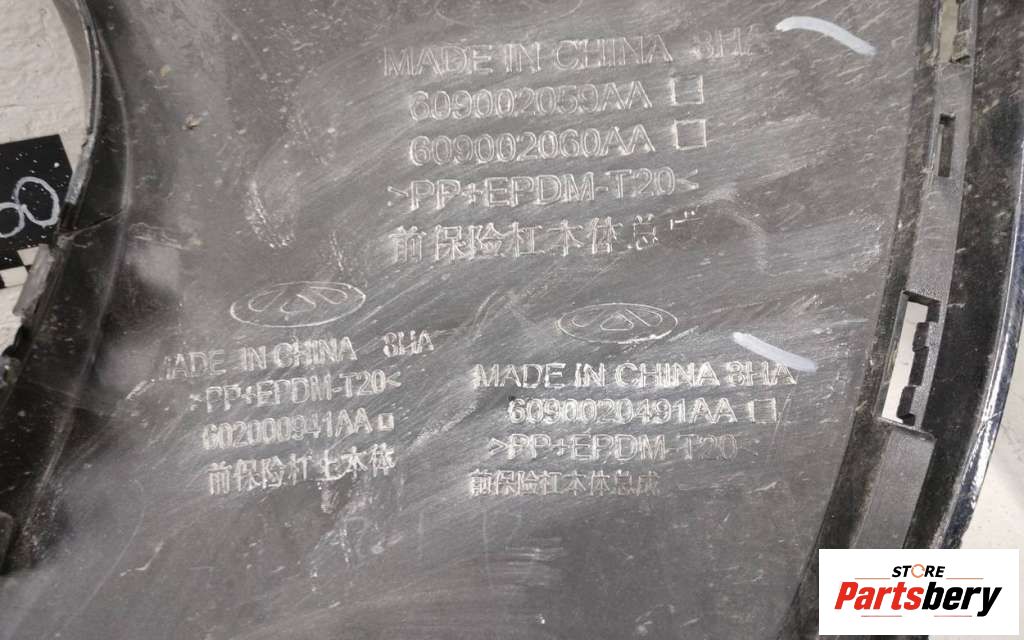 MADE IN CHINA 8HA
609002059AA
609002060AA
>PP+EPDM-T20<
前保险杠本体总
MADE IN CHINA 8HA
>PP+EPDM-T20<
602000941AA
前保险杠上本体
MADE IN CHINA 8HA
6090020491AA
>PP+EPDM-T20<
前保险杠本体总成
STORE
Partsbery